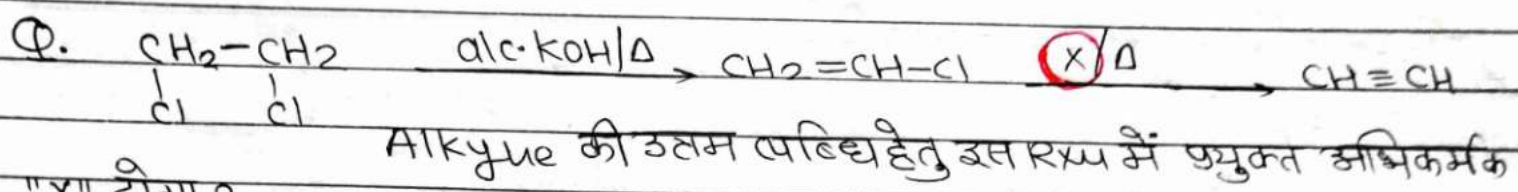 Q. CH2-CH2 alc. KOH/Δ CH2=CH-Cl X/Δ CH≡CH
Cl Cl
Alkyne की उत्तम लब्धि हेतु इस Rxn में प्रयुक्त अभिकर्मक
"X" होगा?